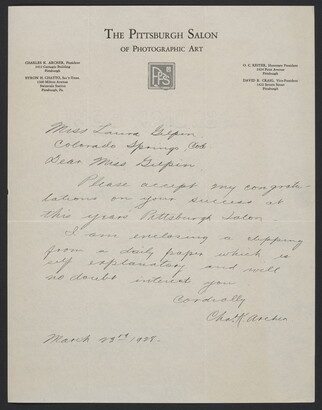 THE PITTSBURGH SALON
OF PHOTOGRAPHIC ART
CHARLES K. ARCHER, President
1412 Carnegie Building
Pittsburgh
BYRON H. CHATTO, Sec'y-Treas.
Pittsburgh, Pa.
O. C. REITER, Honorary President
Pittsburgh
DAVID R. CRAIG, Vice-President
Pittsburgh
PPS
Miss Laura Gilpin
Colorado Springs, Colo.
Dear Miss Gilpin.
Please accept my congratu-
lations on your success at
this years Pittsburgh Salon.
I am enclosing a clipping
from a daily paper which is
self explanatory and will
no doubt interest you
Cordially
Chas. K. Archer
March 23rd, 1928.